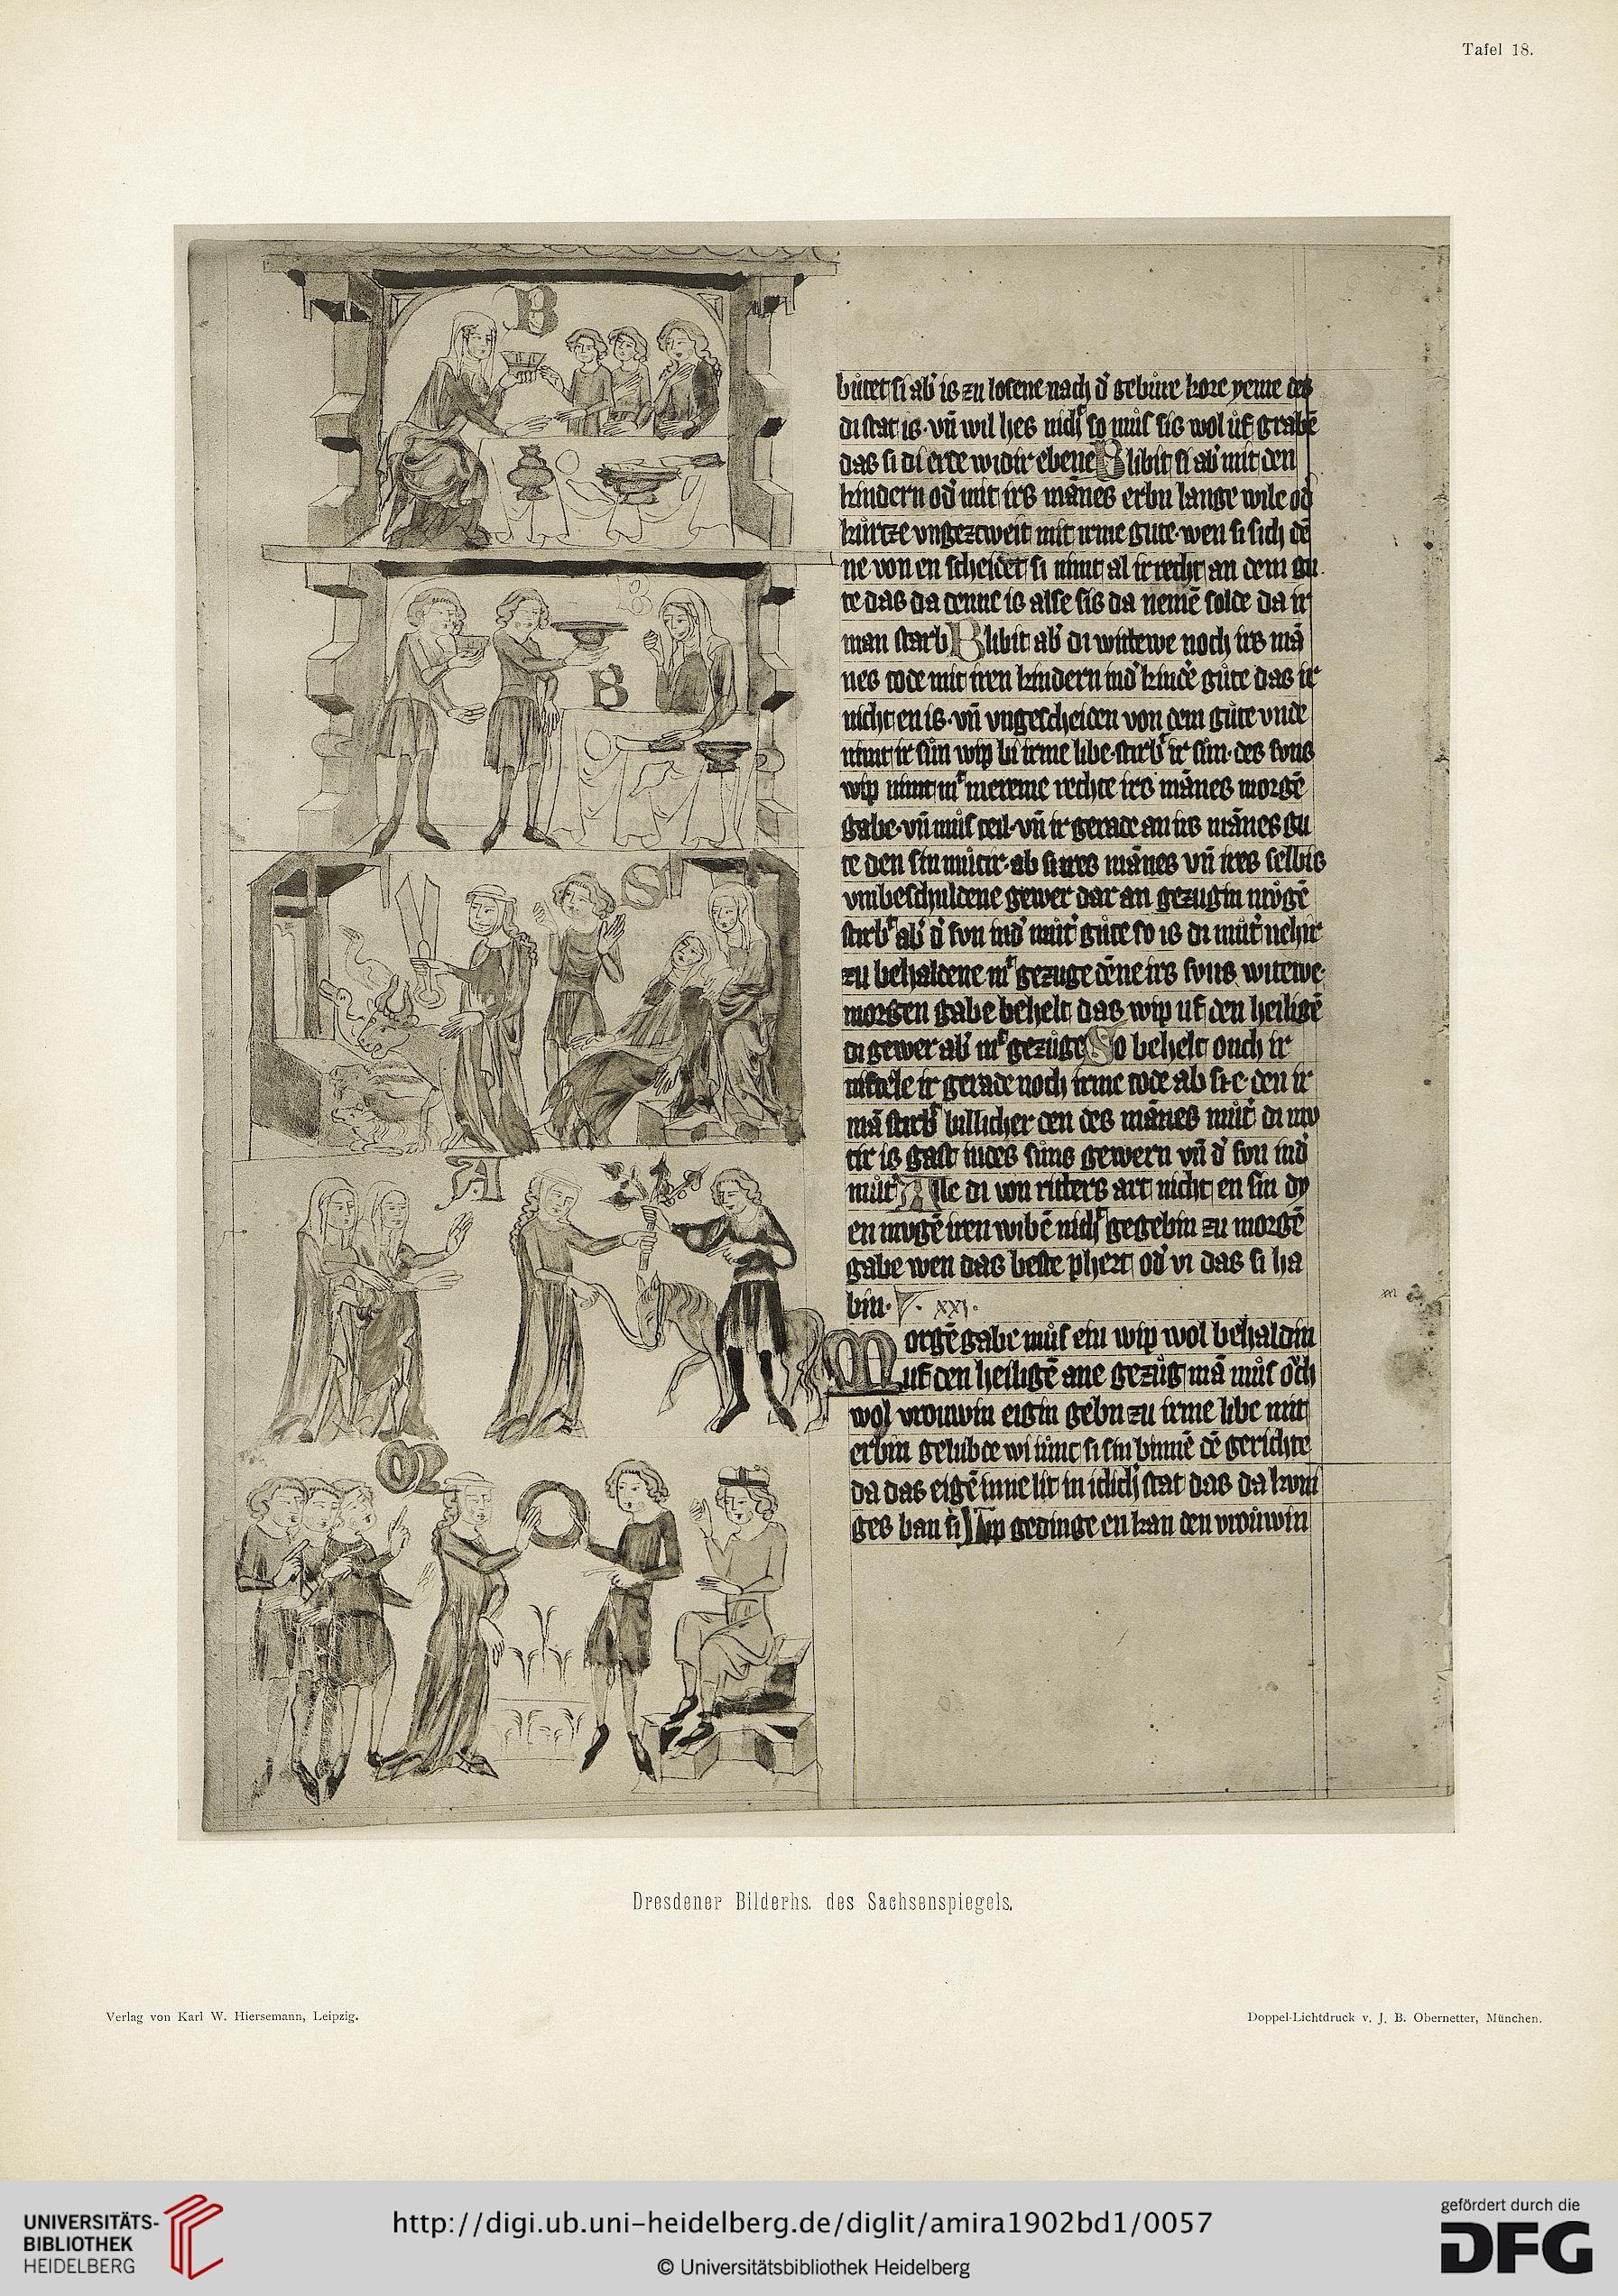 Tafel 18.
B
B
B
S
A
M
bûtet si ab' is zu losene nach d' gebûre kore yeme des
di stat is. vn̄ wil hes nicht so mûs sis wol ûf grabē
das si di erde widir ebene Blibit si ab' mit den
kindern od' mit irs mānes erbin lange wile od'
kûrtze vngezcweit mit irme gute. wen si sich dē
ne von en scheidet si nimt al ir recht an dem gu
te das da denne is alse sis da nemē solde da ir
man starb Blibit ab' di wittewe noch irs mā
nes tode mit iren kindern in d' kinde gûte das ir
nicht en is. vn̄ vngescheiden von dem gûte vnde
nimt ir sûn wip bi irme libe. stirb't ir sûn. des sons
wip nimt mit mereme rechte irs mānes morgē
gabe. vn̄ mûs teil. vn̄ ir gerade an irs mānes gu
te den sin mûtir. ab si irs mānes vn̄ ires selbis
vmbeschuldene gewer dar an gezugin mōgē
stirb't ab' d' son in d' mûtir gûte so is di mûtir nehir
zu behaldene mit gezuge dēne irs sons witewe.
morgen gabe behelt das wip uf den heiligē
di gewer ab' mit gezûge So behelt ouch ir
niftele ir gerade noch irme tode ab si e den ir
mā stirb't billicher den des mānes mûtir di mu
tir is gast in des sûns gewern vn̄ d' son in d'
mûtir Alle di von ritters art nicht en sin dy
en mogē iren wibē nicht gegebin zu morgē
gabe wen das beste phert od' vi das si ha
bin. xxi.
Morgē gabe mûs ein wip wol behaldin
uf den heiligē ane gezûg mā mûs och
wol vrouwin eigin gebn zu irme libe mit
erbin gelubde wi iûnc si sin binnē dē gerichte
da das eigē inne lit in iclich' stat das da kuni
ges ban si Kein gedinge en kan den vrouwin
Dresdener Bilderhs. des Sachsenspiegels.
Verlag von Karl W. Hiersemann, Leipzig.
Doppel-Lichtdruck v. J. B. Obernetter, München.
UNIVERSITÄTS-
BIBLIOTHEK
HEIDELBERG
http://digi.ub.uni-heidelberg.de/diglit/amira1902bd1/0057
© Universitätsbibliothek Heidelberg
gefördert durch die
DFG